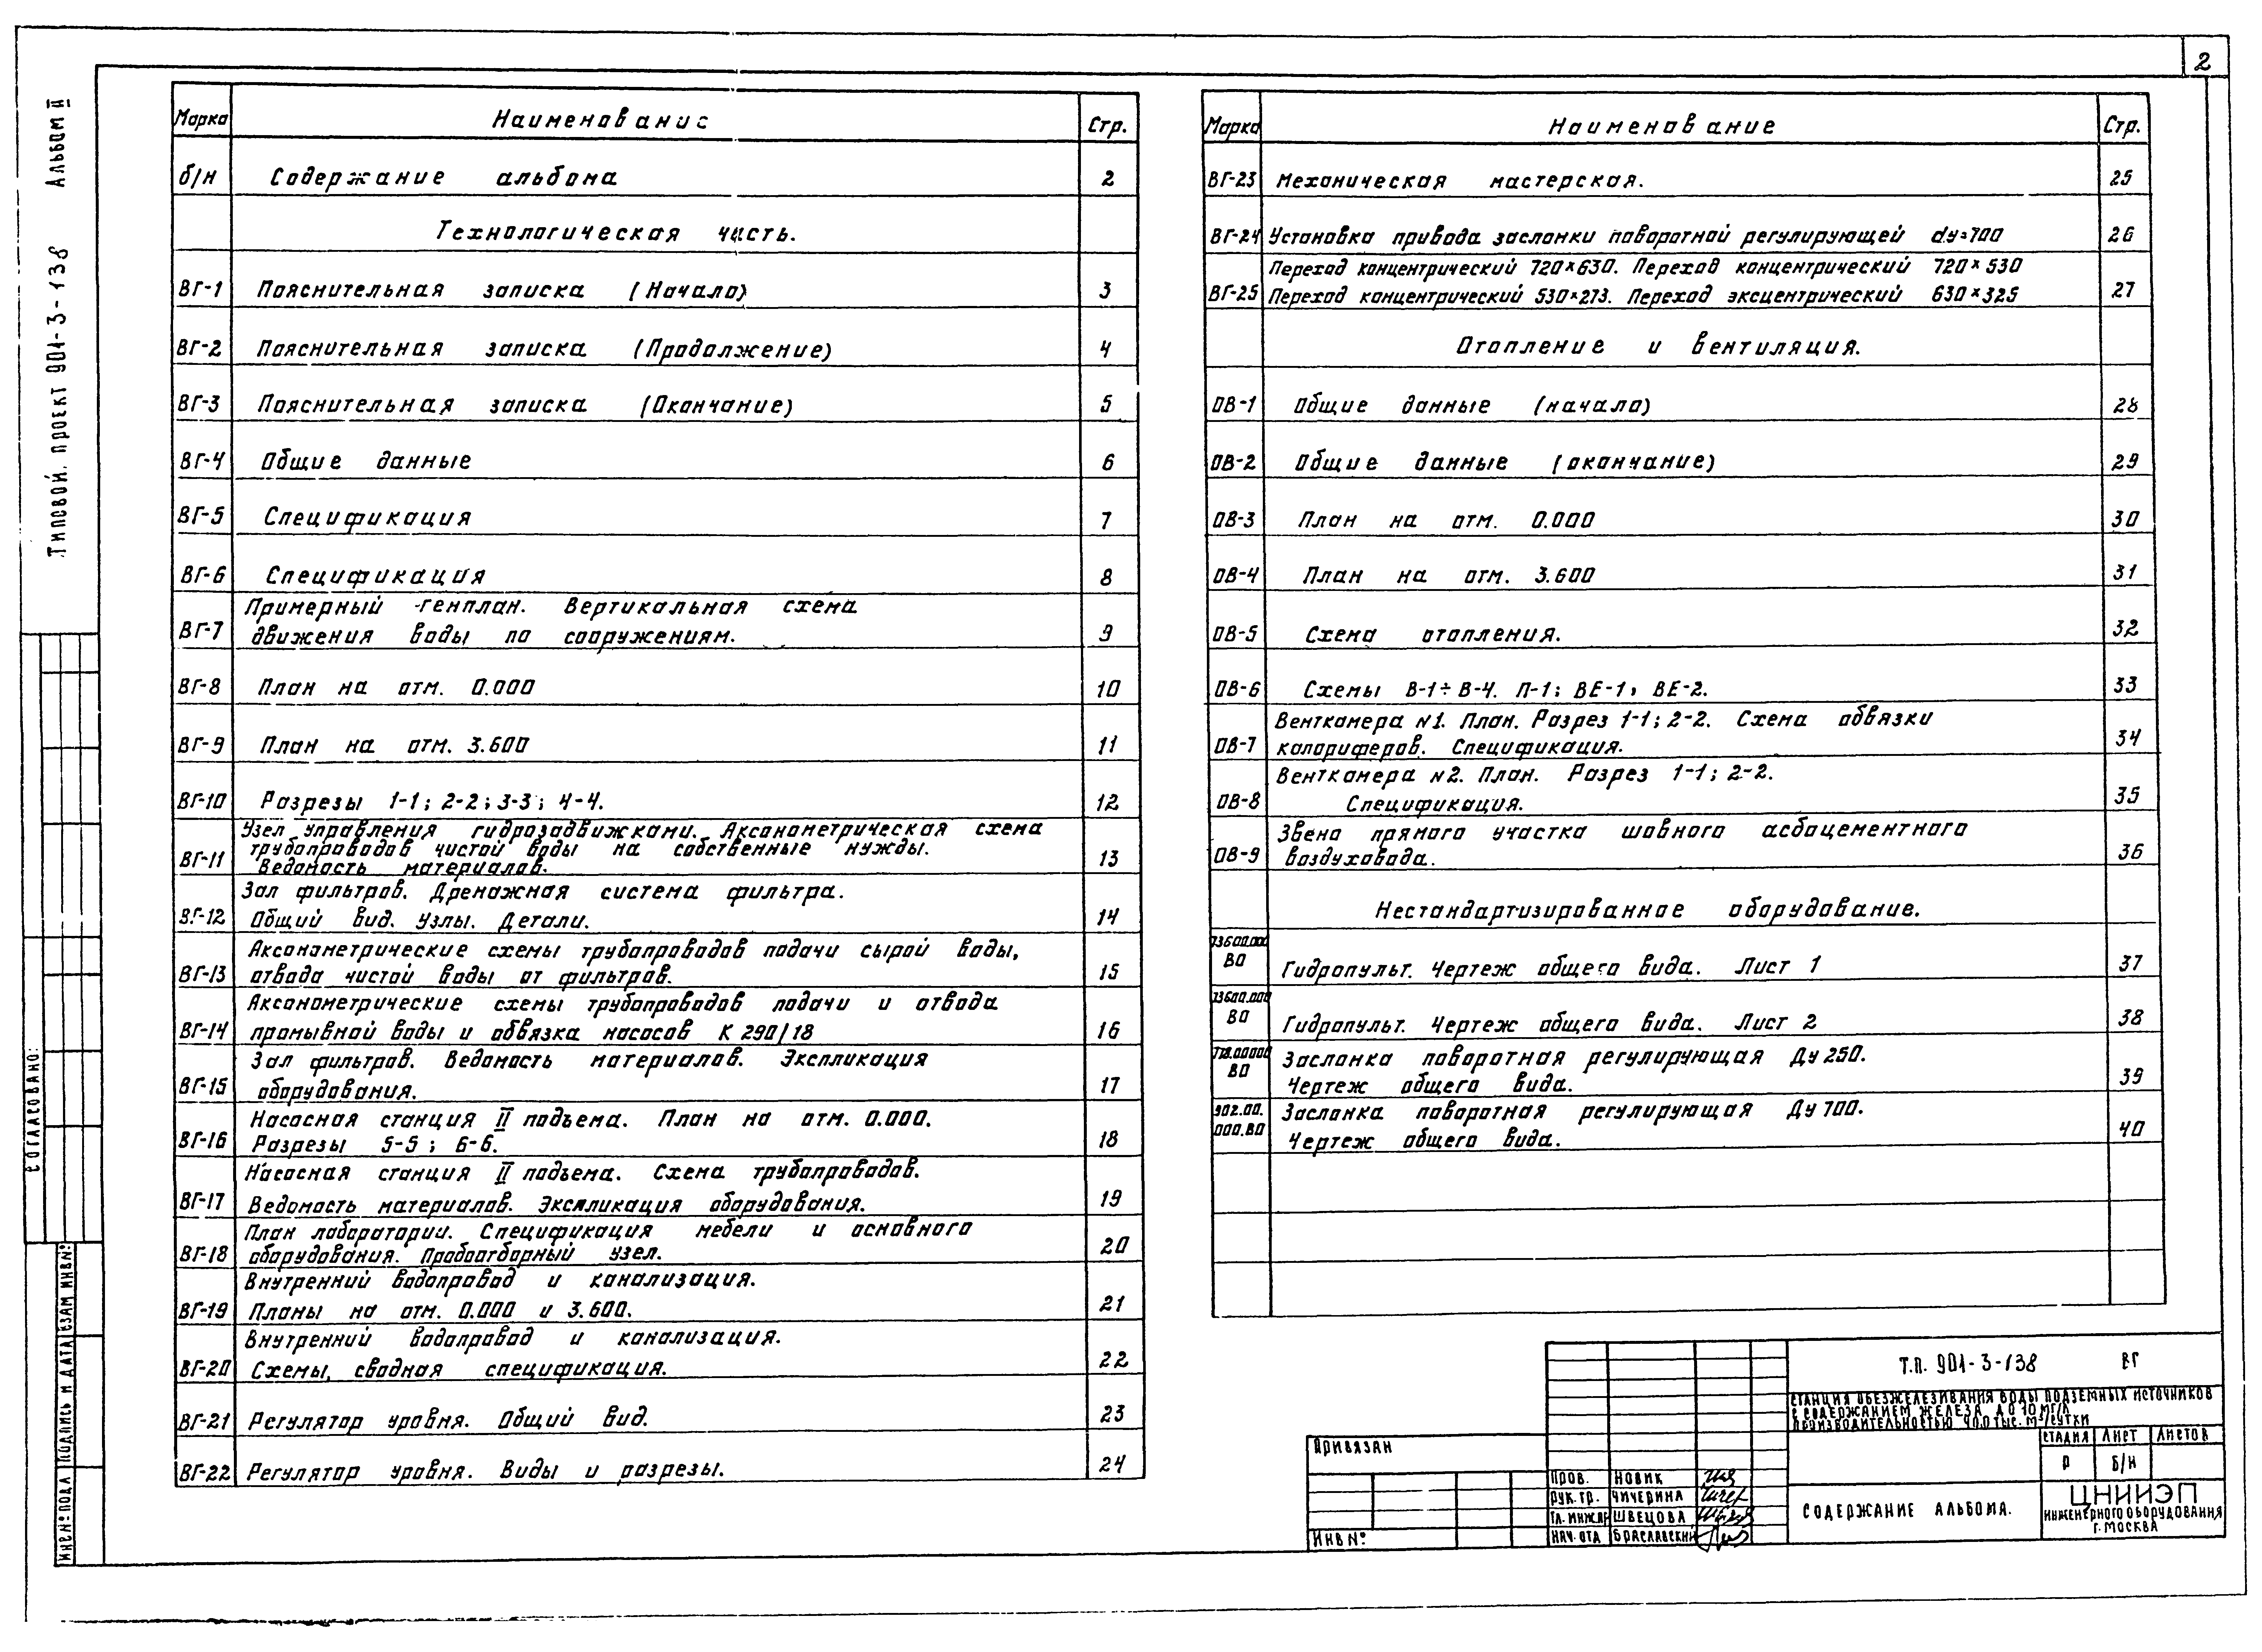 2
Альбом II
Типовой проект 901-3-138
Марка Наименование Стр.
б/н Содержание альбома 2
Технологическая часть.
ВГ-1 Пояснительная записка (Начало) 3
ВГ-2 Пояснительная записка (Продолжение) 4
ВГ-3 Пояснительная записка (Окончание) 5
ВГ-4 Общие данные 6
ВГ-5 Спецификация 7
ВГ-6 Спецификация 8
Примерный генплан. Вертикальная схема
ВГ-7 движения воды по сооружениям. 9
ВГ-8 План на отм. 0.000 10
ВГ-9 План на отм. 3.600 11
ВГ-10 Разрезы 1-1; 2-2; 3-3; 4-4. 12
Узел управления гидрозадвижками. Аксонометрическая схема
трубопроводов чистой воды на собственные нужды.
ВГ-11 Ведомость материалов. 13
Зал фильтров. Дренажная система фильтра.
ВГ-12 Общий вид. Узлы. Детали. 14
Аксонометрические схемы трубопроводов подачи сырой воды,
ВГ-13 отвода чистой воды от фильтров. 15
Аксонометрические схемы трубопроводов подачи и отвода
ВГ-14 промывной воды и обвязка насосов К 290/18 16
Зал фильтров. Ведомость материалов. Экспликация
ВГ-15 оборудования. 17
Насосная станция II подъема. План на отм. 0.000.
ВГ-16 Разрезы 5-5; 6-6. 18
Насосная станция II подъема. Схема трубопроводов.
ВГ-17 Ведомость материалов. Экспликация оборудования. 19
План лаборатории. Спецификация мебели и основного
ВГ-18 оборудования. Пробоотборный узел. 20
Внутренний водопровод и канализация.
ВГ-19 Планы на отм. 0.000 и 3.600. 21
Внутренний водопровод и канализация.
ВГ-20 Схемы, сводная спецификация. 22
ВГ-21 Регулятор уровня. Общий вид. 23
ВГ-22 Регулятор уровня. Виды и разрезы. 24
Марка Наименование Стр.
ВГ-23 Механическая мастерская. 25
ВГ-24 Установка привода заслонки поворотной регулирующей dу=700 26
Переход концентрический 720×630. Переход концентрический 720×530
ВГ-25 Переход концентрический 530×273. Переход эксцентрический 630×325 27
Отопление и вентиляция.
ОВ-1 Общие данные (начало) 28
ОВ-2 Общие данные (окончание) 29
ОВ-3 План на отм. 0.000 30
ОВ-4 План на отм. 3.600 31
ОВ-5 Схема отопления. 32
ОВ-6 Схемы В-1÷В-4. П-1; ВЕ-1, ВЕ-2. 33
Венткамера №1. План. Разрез 1-1; 2-2. Схема обвязки
ОВ-7 калориферов. Спецификация. 34
Венткамера №2. План. Разрез 1-1; 2-2.
ОВ-8 Спецификация. 35
Звено прямого участка шовного асбоцементного
ОВ-9 воздуховода. 36
Нестандартизированное оборудование.
ВО Гидропульт. Чертеж общего вида. Лист 1 37
ВО Гидропульт. Чертеж общего вида. Лист 2 38
Заслонка поворотная регулирующая Ду 250.
ВО Чертеж общего вида. 39
902.00. Заслонка поворотная регулирующая Ду 700.
000.ВО Чертеж общего вида. 40
СОГЛАСОВАНО:
ВЗАМ ИНВ№
ПОДПИСЬ И ДАТА
ИНВ№ ПОДЛ
ПРИВЯЗАН
ИНВ №
ПРОВ. НОВИК
РУК. ГР. ЧИЧЕРИНА
ГЛ. ИНЖ.ПР ШВЕЦОВА
НАЧ. ОТД БРАСЛАВСКИЙ
Т.П. 901-3-138 ВГ
СТАНЦИЯ ОБЕЗЖЕЛЕЗИВАНИЯ ВОДЫ ПОДЗЕМНЫХ ИСТОЧНИКОВ
С СОДЕРЖАНИЕМ ЖЕЛЕЗА ДО 10 МГ/Л
ПРОИЗВОДИТЕЛЬНОСТЬЮ 40.0 ТЫС. М³/СУТКИ
СТАДИЯ ЛИСТ ЛИСТОВ
Р Б/Н
СОДЕРЖАНИЕ АЛЬБОМА.
ЦНИИЭП
ИНЖЕНЕРНОГО ОБОРУДОВАНИЯ
Г. МОСКВА